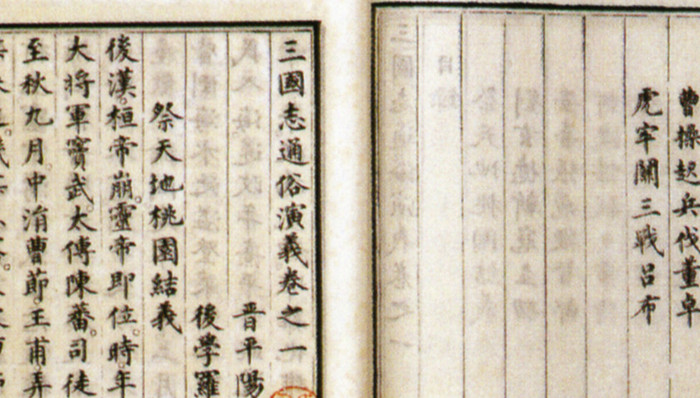 曹操起兵伐董卓
虎牢關三戰呂布
三國志通俗演義卷之一
晋平陽
後學羅
祭天地桃園結義
後漢。桓帝崩。靈帝即位。時年
大將軍竇武太傅陳蕃。司徒
至秋九月。中涓曹節。王甫弄